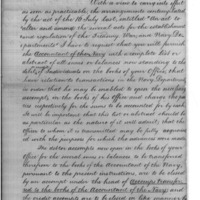 With a view to carry into effect
as soon as practicable, the arrangements contemplated
by the act of the 10 July last, entitled "An act to
alter and amend the several acts for the establishment
and regulation of the Treasury, War, and Navy De-
partments" I have to request that you will furnish
the Accountant of the Navy with a complete list or
abstract of all sums or balances now standing to the
debit of Individuals on the books of your Office, that
have relation to transactions in the Navy Department
in order that he may be enabled to open the
accounts on the books of his Office and charge the per-
sons respectively for the sums to be accounted for by each.
It will be important that this list or abstract should be
as particular as the nature of it will admit; that the
Office to whom it is transmitted may be fully acquaint-
ed with the purposes for which the advances were made.
All other accounts now open in the books of
your Office for the several sums or balances to be transferred
therefrom to the books of the Accountant of the Navy,
pursuant to the present instructions, are to be closed
by an account under the head of Accounts transfer-
red to the books of the Accountant of the Navy and
the credit accounts are to be closed in like manner